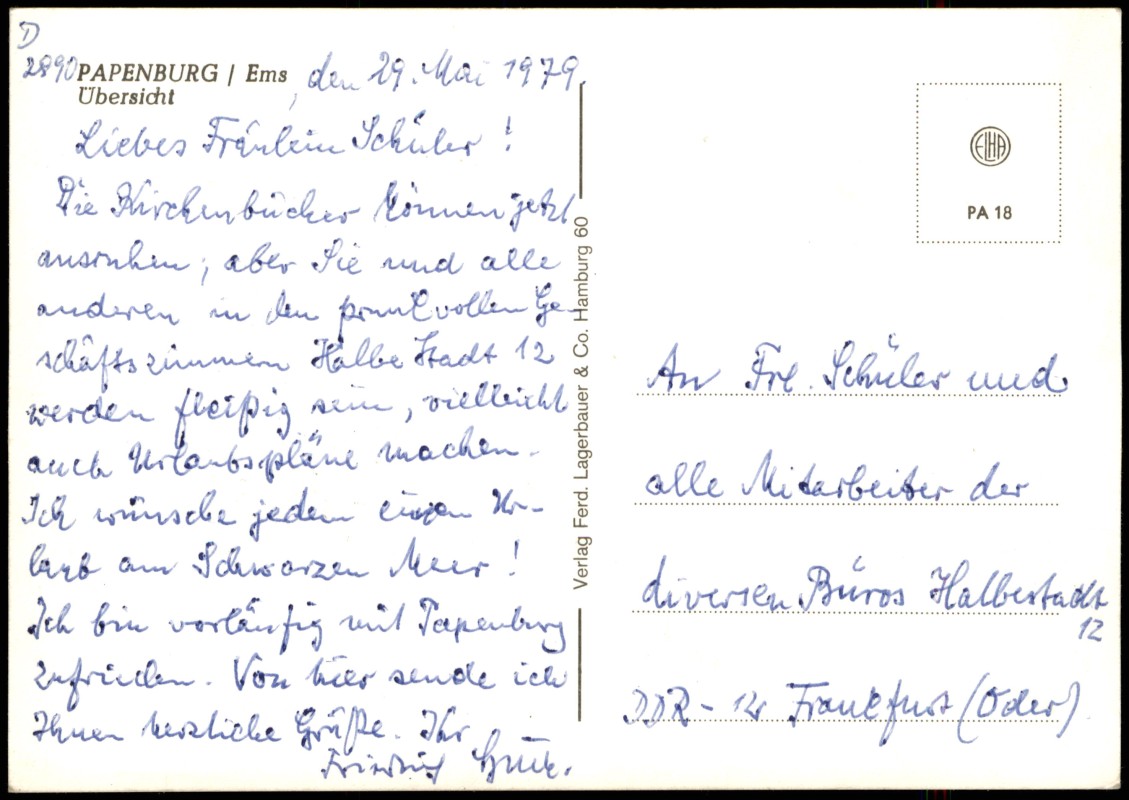 D
2890 PAPENBURG / Ems, den 29. Mai 1979.
Übersicht
Liebes Fräulein Schüler!
Die Kirchenbücher können jetzt
ausruhen, aber Sie und alle
anderen in den prunkvollen Ge-
schäftszimmern Halbe Stadt 12
werden fleißig sein, vielleicht
auch Urlaubspläne machen.
Ich wünsche jedem einen Ur-
laub am Schwarzen Meer!
Ich bin vorläufig mit Papenburg
zufrieden. Von hier sende ich
Ihnen herzliche Grüße. Ihr
Friedrich
Verlag Ferd. Lagerbauer & Co. Hamburg 60
ELHA
PA 18
An Frl. Schüler und
alle Mitarbeiter der
diversen Büros Halbestadt
12
DDR - 12 Frankfurt (Oder)